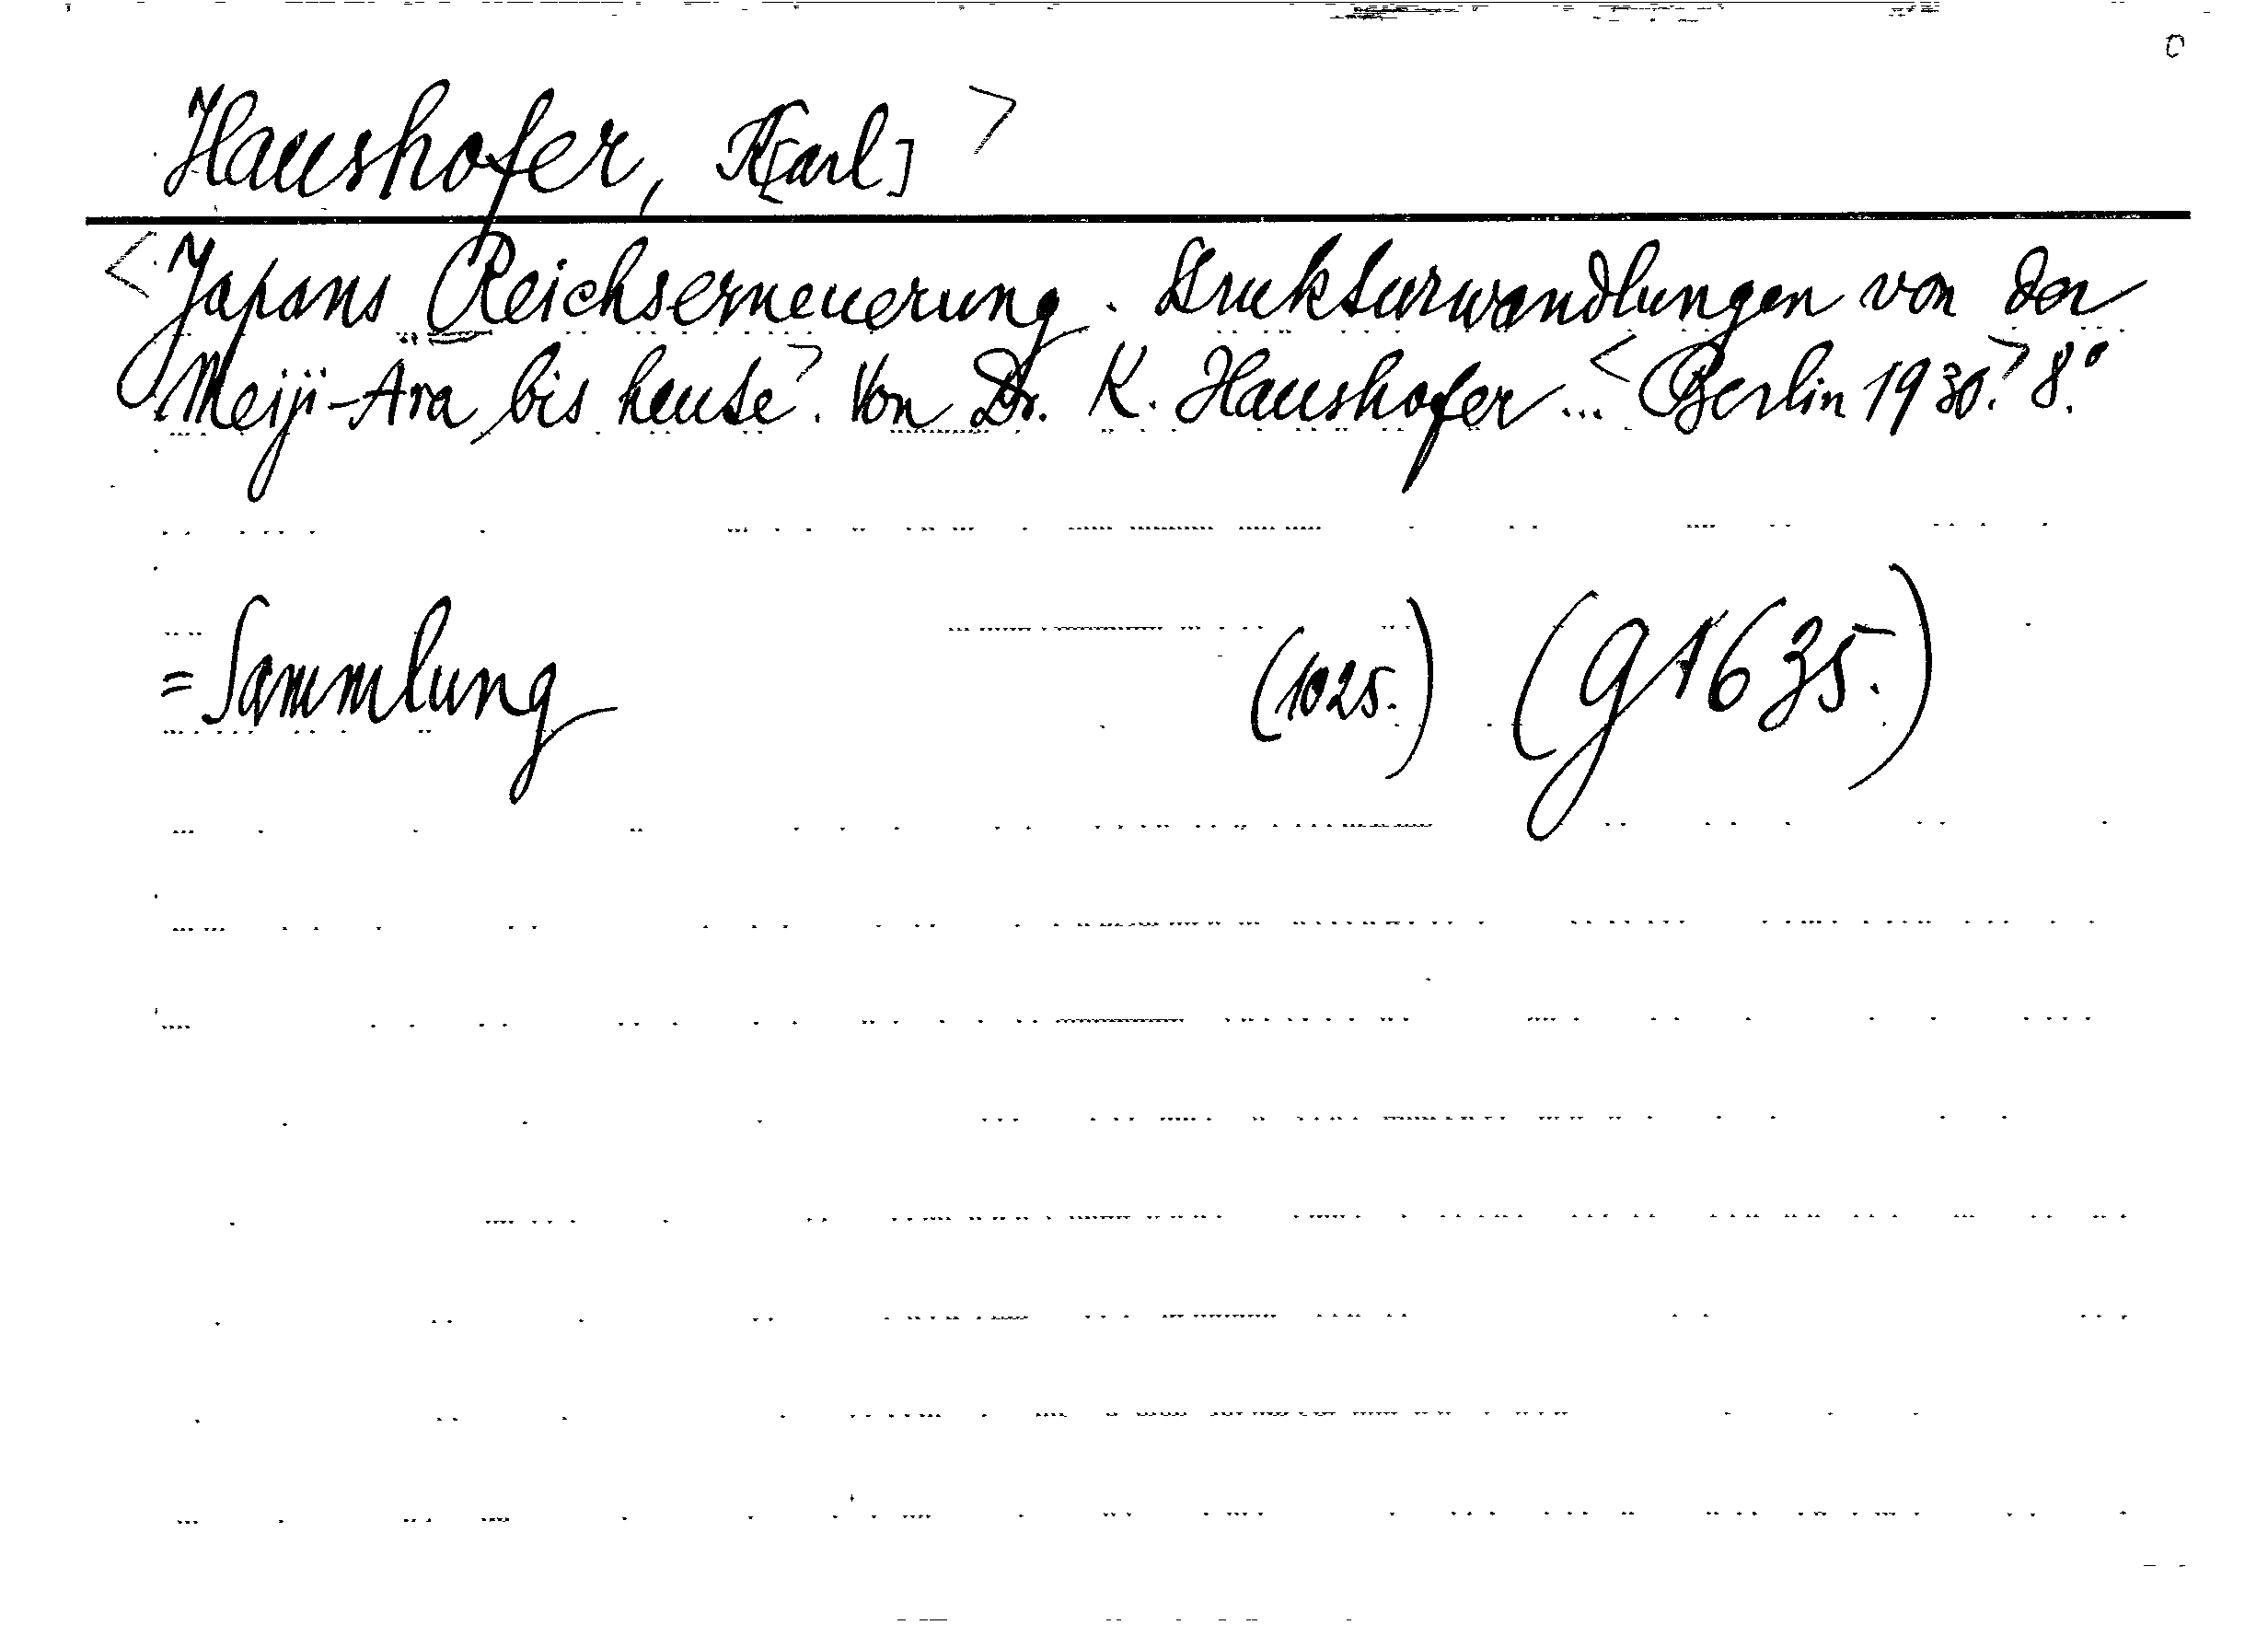 Haushofer, K[arl] >
< Japans Reichserneuerung. Strukturwandlungen von der
Meiji-Ara bis heute >. Von Dr. K. Haushofer ... < Berlin 1930. > 8.°
= Sammlung (1025.) (g 1635.)